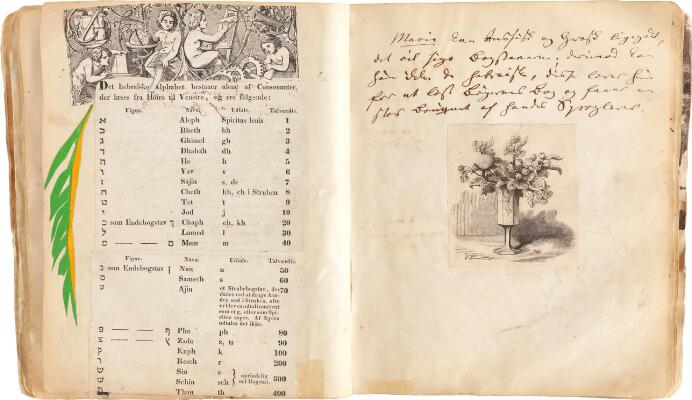 Det hebraiske Alphabet bestaaer alene af Consonanter,
der læses fra Høire til Venstre, og ere følgende:
Figur. Navn. Udtale. Talværdie.
א Aleph Spiritus lenis 1
ב Bheth bh 2
ג Ghimel gh 3
ד Dhaleth dh 4
ה He h 5
ו Vav v 6
ז Sajin s, ds 7
ח Cheth hh, ch i Struben 8
ט Tet t 9
י Jod j 10
כ som Endebogstav ך Chaph ch, kh 20
ל Lamed l 30
מ — — ם Mem m 40
Figur. Navn. Udtale. Talværdie.
נ som Endebogstav ן Nun n 50
ס Samech s 60
ע Ajin et Strubebogstav, der 70
ned i Struben, ofte
som et g, eller som Spi-
ritus asper. Af Nyere
udtales det ikke.
פ — — ף Phe ph 80
צ — — ץ Zade z, ts 90
ק Kuph k 100
ר Resch r 200
ש Sin s oprindelig 300
ש Schin sch eet Bogstav.
ת Thau th 400
Marie kan Antydisk og Græsk ligegodt,
det vil sige Bogstaverne; derimod kan
hun ikke de Hebraiske, disse lover hun
for at læse Bogen og faaer en
stor Bouquet af